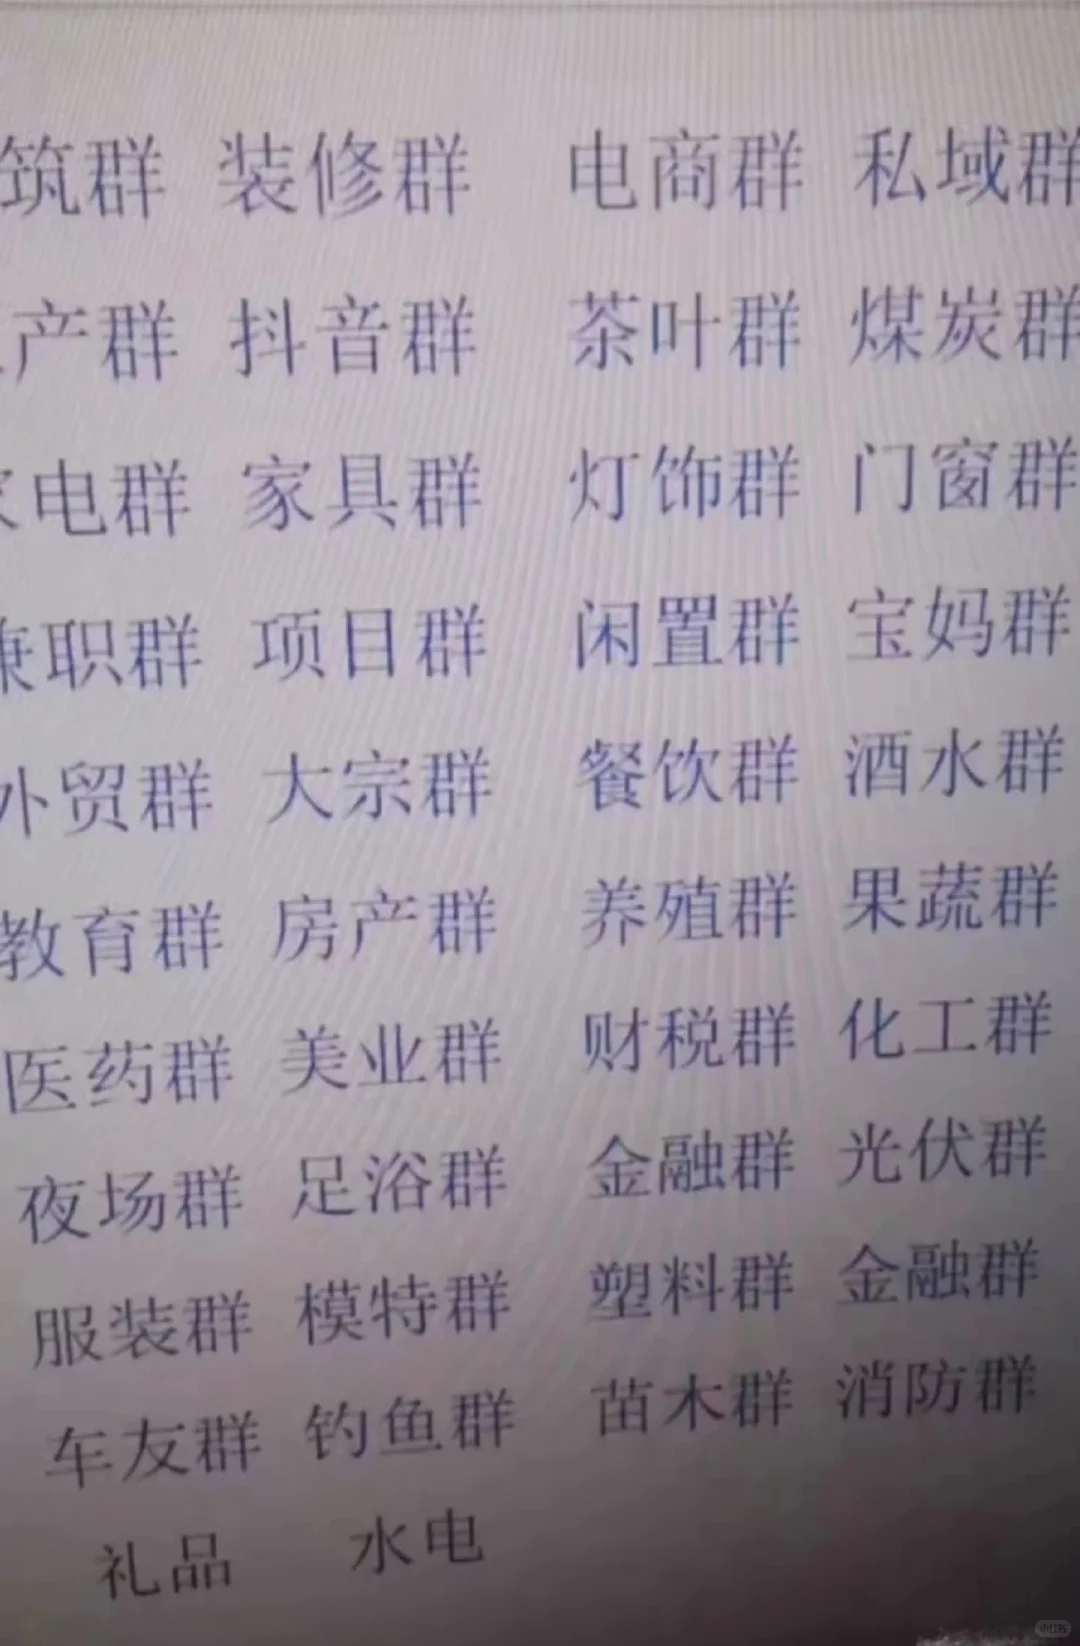 筑群 装修群 电商群 私域群
产群 抖音群 茶叶群 煤炭群
电群 家具群 灯饰群 门窗群
兼职群 项目群 闲置群 宝妈群
外贸群 大宗群 餐饮群 酒水群
教育群 房产群 养殖群 果蔬群
医药群 美业群 财税群 化工群
夜场群 足浴群 金融群 光伏群
服装群 模特群 塑料群 金融群
车友群 钓鱼群 苗木群 消防群
礼品 水电
小红书